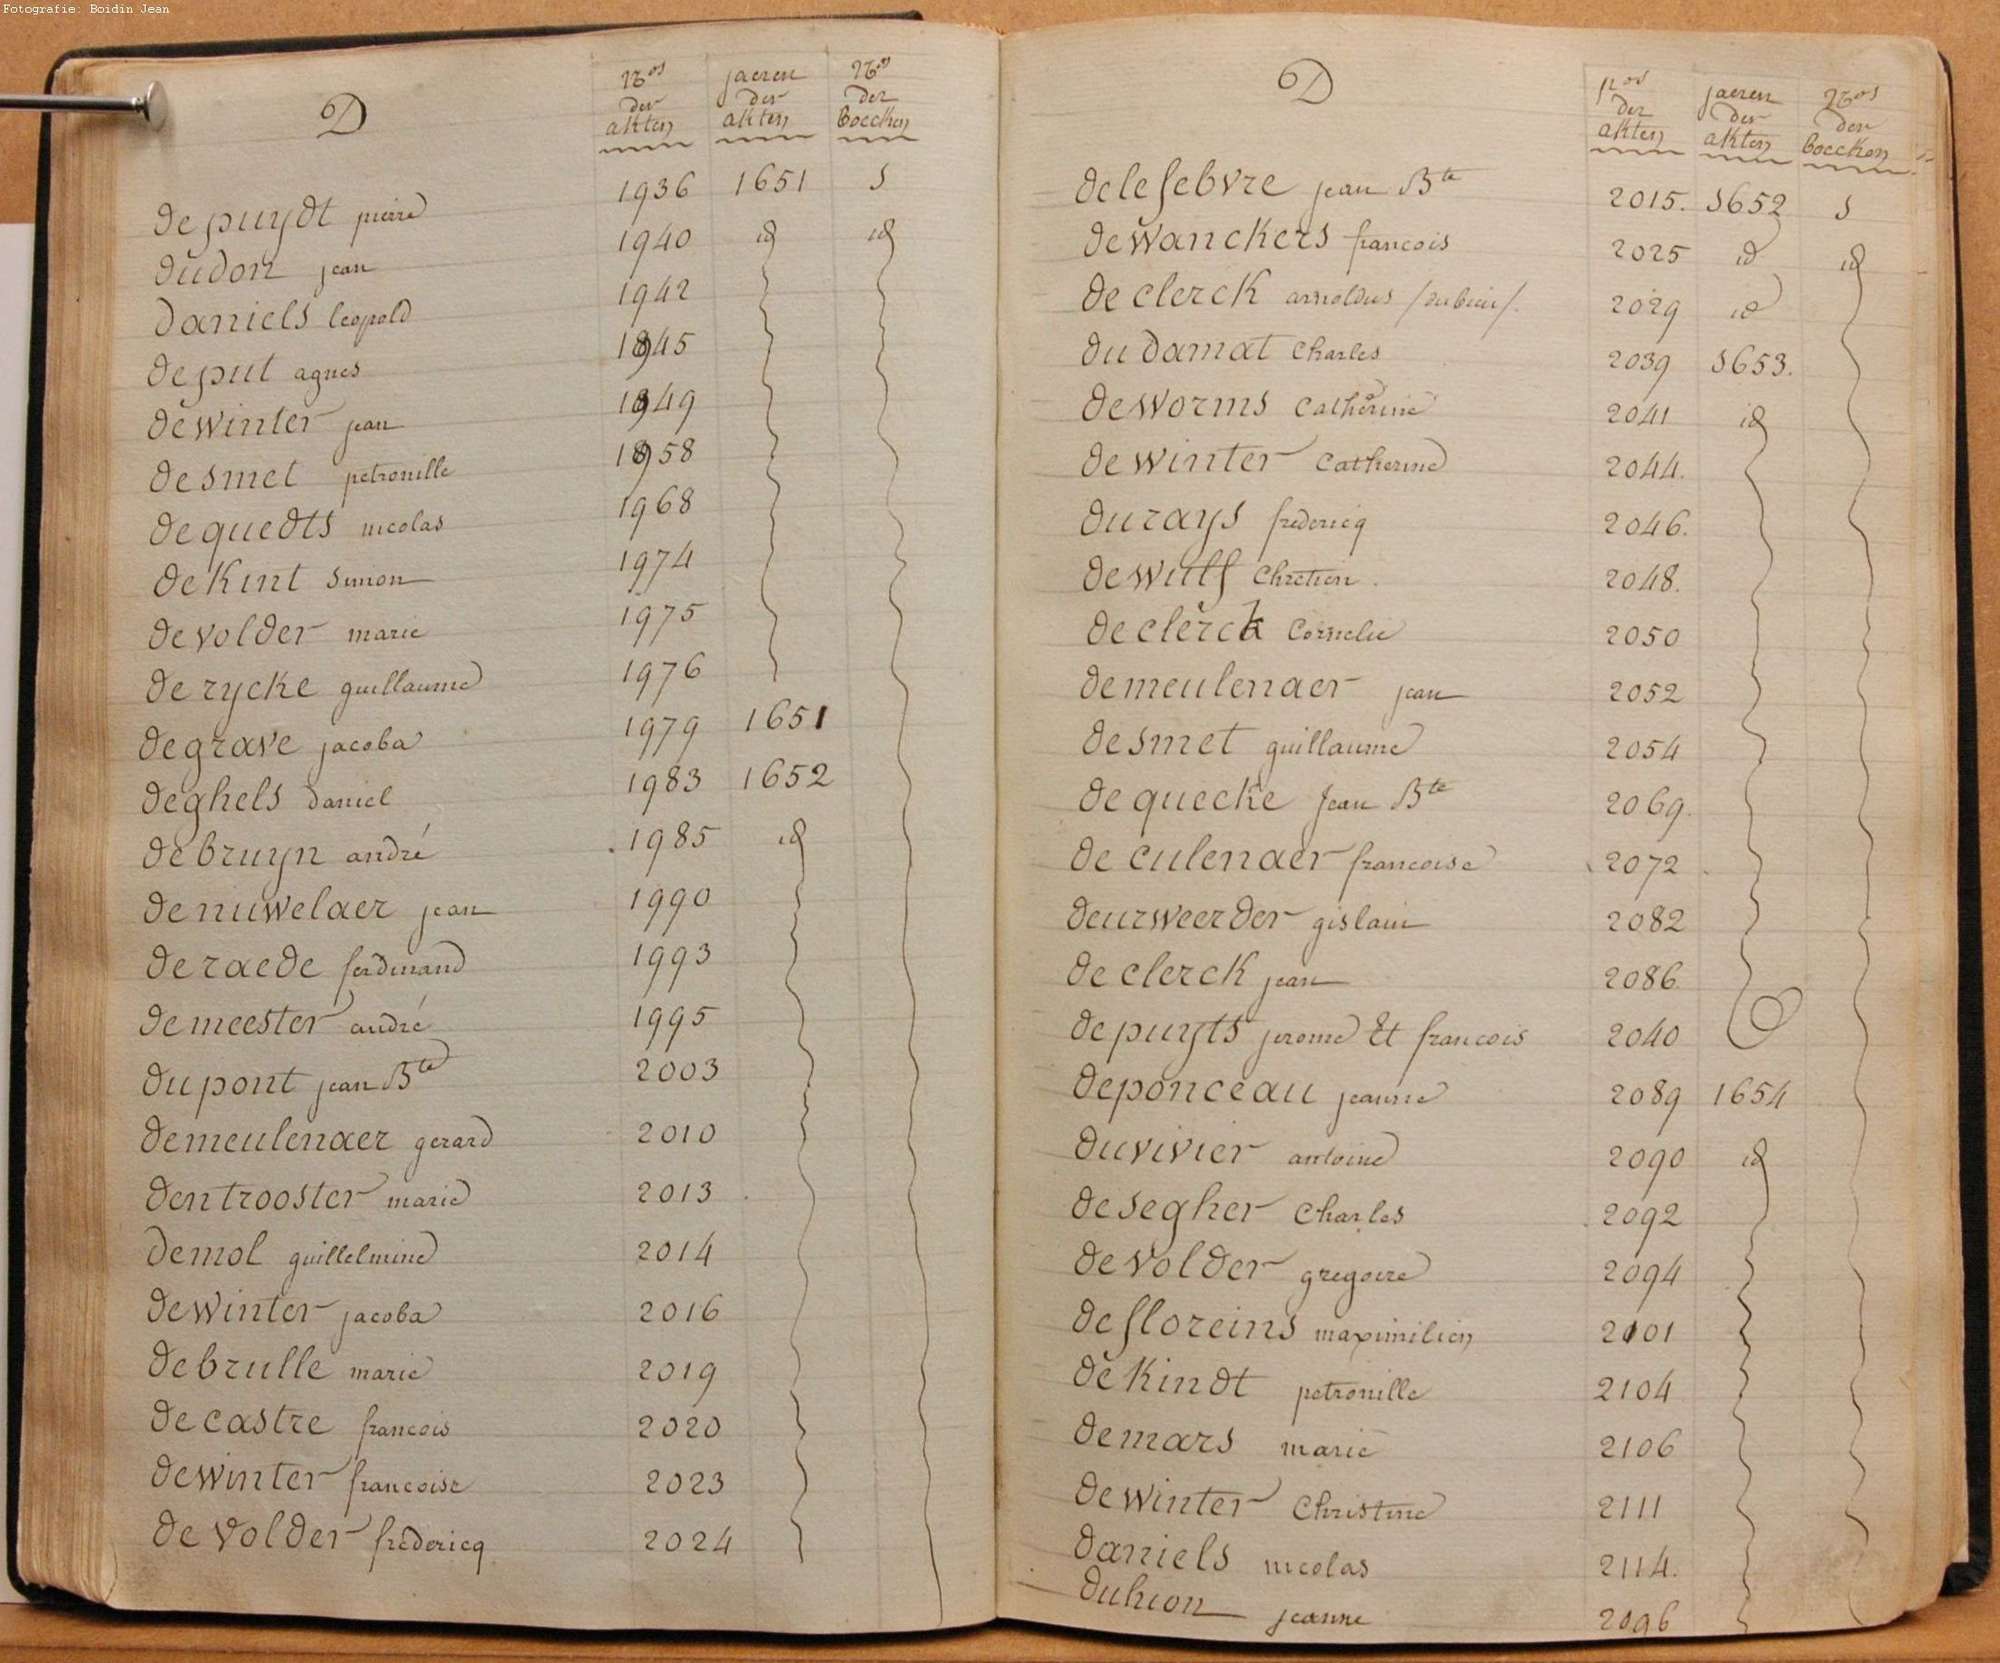 Fotografie: Boidin Jean
D Nos der akten jaeren der akten Nos der boecken
de puydt pierre 1936 1651 5
dudon jean 1940 id id
daniels leopold 1942
de put agnes 1945
de winter jean 1949
de smet petronille 1958
de quedts nicolas 1968
de Kint Simon 1974
de volder marie 1975
de rycke guillaume 1976
de grave jacoba 1979 1651
deghels daniel 1983 1652
de bruyn andré 1985 id
de nuwelaer jean 1990
de raede ferdinand 1993
de meester andré 1995
du pont jean Bte 2003
demeulenaer gerard 2010
den trooster marie 2013
demol guillelmine 2014
dewinter jacoba 2016
debrulle marie 2019
de castre francois 2020
dewinter francoise 2023
de volder frédericq 2024
D Nos der akten jaeren der akten Nos der boecken
delefebvre jean Bte 2015. 1652 5
dewanckers francois 2025 id id
de clerck arnoldus 2029 id
du damat Charles 2039 1653.
deworms Catherine 2041 id
de winter Catherine 2044.
durays frédericq 2046.
dewulf Chretien. 2048.
de clerck Cornelie 2050
demeulenaer jean 2052
desmet guillaume 2054
de quecke Jean Bte 2069.
de culenaer francoise 2072
deurweerder gislain 2082
de clerck jean 2086
de puyts jerome Et francois 2040
deponceau jeanne 2089 1654
duvivier antoine 2090 id
desegher Charles 2092
de volder gregoire 2094
de floreins maximilien 2101
de Kindt petronille 2104
demars marie 2106
dewinter Christine 2111
daniels nicolas 2114.
duhion jeanne 2096